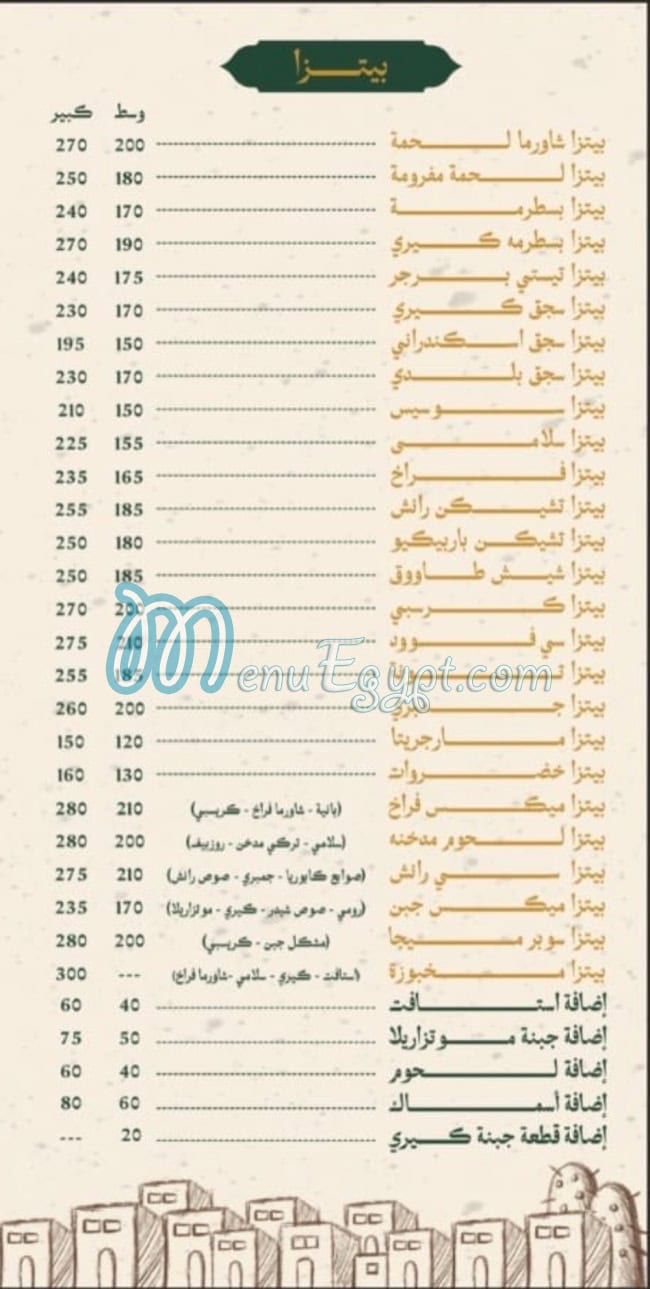 بيتزا
وسط كبير
بيتزا شاورما لحمة 200 270
بيتزا لحمة مفرومة 180 250
بيتزا بسطرمة 170 240
بيتزا بسطرمه كيري 190 270
بيتزا تيستي برجر 175 240
بيتزا سجق كيري 170 230
بيتزا سجق اسكندراني 150 195
بيتزا سجق بلدي 170 230
بيتزا سوسيس 150 210
بيتزا سلامى 155 225
بيتزا فراخ 165 235
بيتزا تشيكن رانش 185 255
بيتزا تشيكن باربيكيو 180 250
بيتزا شيش طاووق 185 250
بيتزا كرسبي 200 270
بيتزا سي فوود 210 275
بيتزا تونا 185 255
بيتزا جمبري 200 260
بيتزا مارجريتا 120 150
بيتزا خضروات 130 160
بيتزا ميكس فراخ (بانية - شاورما فراخ - كريسبي) 210 280
بيتزا لحوم مدخنه (سلامي - تركي مدخن - روزبيف) 200 280
بيتزا سي رانش (صوابع كابوريا - جمبري - صوص رانش) 210 275
بيتزا ميكس جبن (رومي - صوص شيدر - كيري - موتزاريلا) 170 235
بيتزا سوبر ميجا (مشكل جبن - كريسبي) 200 280
بيتزا مخبوزة (استافت - كيري - سلامي -شاورما فراخ) --- 300
إضافة استافت 40 60
إضافة جبنة موتزاريلا 50 75
إضافة لحوم 40 60
إضافة أسماك 60 80
إضافة قطعة جبنة كيري 20 ---
MenuEgypt.com